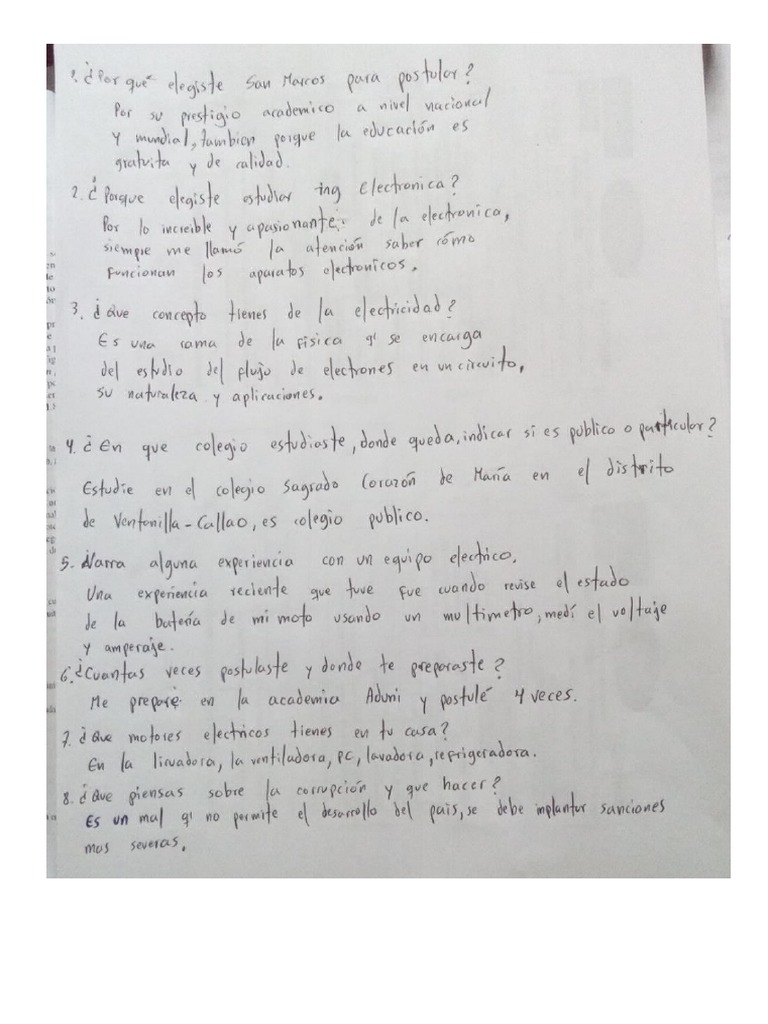 1. ¿Por qué elegiste San Marcos para postular?
Por su prestigio academico a nivel nacional
y mundial, tambien porque la educación es
gratuita y de calidad.
2. ¿Porque elegiste estudiar ing Electronica?
Por lo increible y apasionante. de la electronica,
siempre me llamó la atención saber cómo
funcionan los aparatos electronicos.
3. ¿Que concepto tienes de la electricidad?
Es una rama de la fisica q' se encarga
del estudio del flujo de electrones en un circuito,
su naturaleza y aplicaciones.
4. ¿En que colegio estudiaste, donde queda, indicar si es publico o particular?
Estudie en el colegio Sagrado Corazón de María en el distrito
de Ventanilla-Callao, es colegio publico.
5. Narra alguna experiencia con un equipo electrico.
Una experiencia reciente que tuve fue cuando revise el estado
de la batería de mi moto usando un multimetro, medí el voltaje
y amperaje.
6. ¿Cuantas veces postulaste y donde te preparaste?
Me preparé en la academia Aduni y postulé 4 veces.
7. ¿Que motores electricos tienes en tu casa?
En la licuadora, la ventiladora, PC, lavadora, refrigeradora.
8. ¿Que piensas sobre la corrupción y que hacer?
Es un mal q' no permite el desarrollo del pais, se debe implantar sanciones
mas severas.